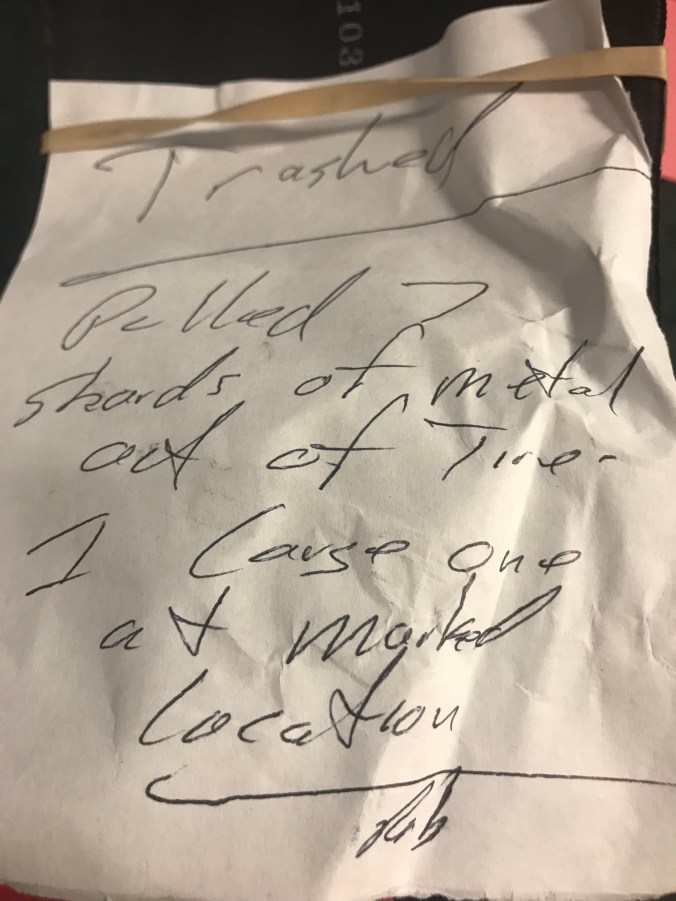 103
Trashed
Pulled 7
shards of metal
out of Tire.
1 Large one
at marked
location
Rob